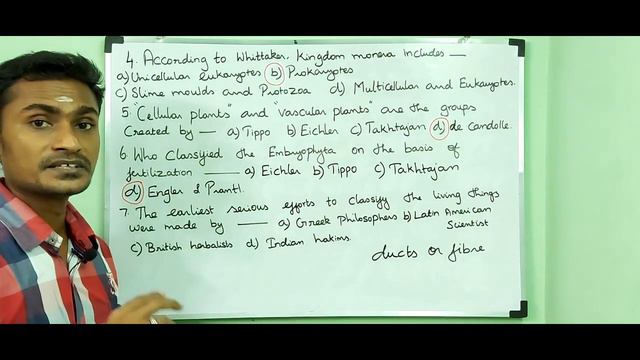 4. According to Whittaker, Kingdom monera includes —
a) Unicellular eukaryotes b) Prokaryotes
c) Slime moulds and Protozoa d) Multicellular and Eukaryotes.
5. "Cellular plants" and "vascular plants" are the groups
Created by — a) Tippo b) Eichler c) Takhtajan d) de candolle.
6. Who Classyied the Embryophyta on the basis of
fertilization — a) Eichler b) Tippo c) Takhtajan
d) Engler & Prantl.
7. The earliest serious efforts to classify the living things
were made by — a) Greek Philosophers b) Latin American
Scientist
c) British herbalists d) Indian hakims.
ducts or fibre